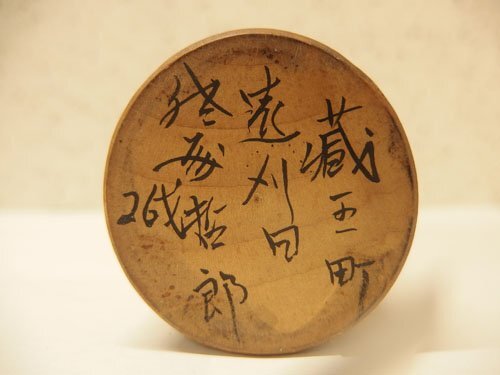 蔵王町
遠刈田
佐藤哲郎
26